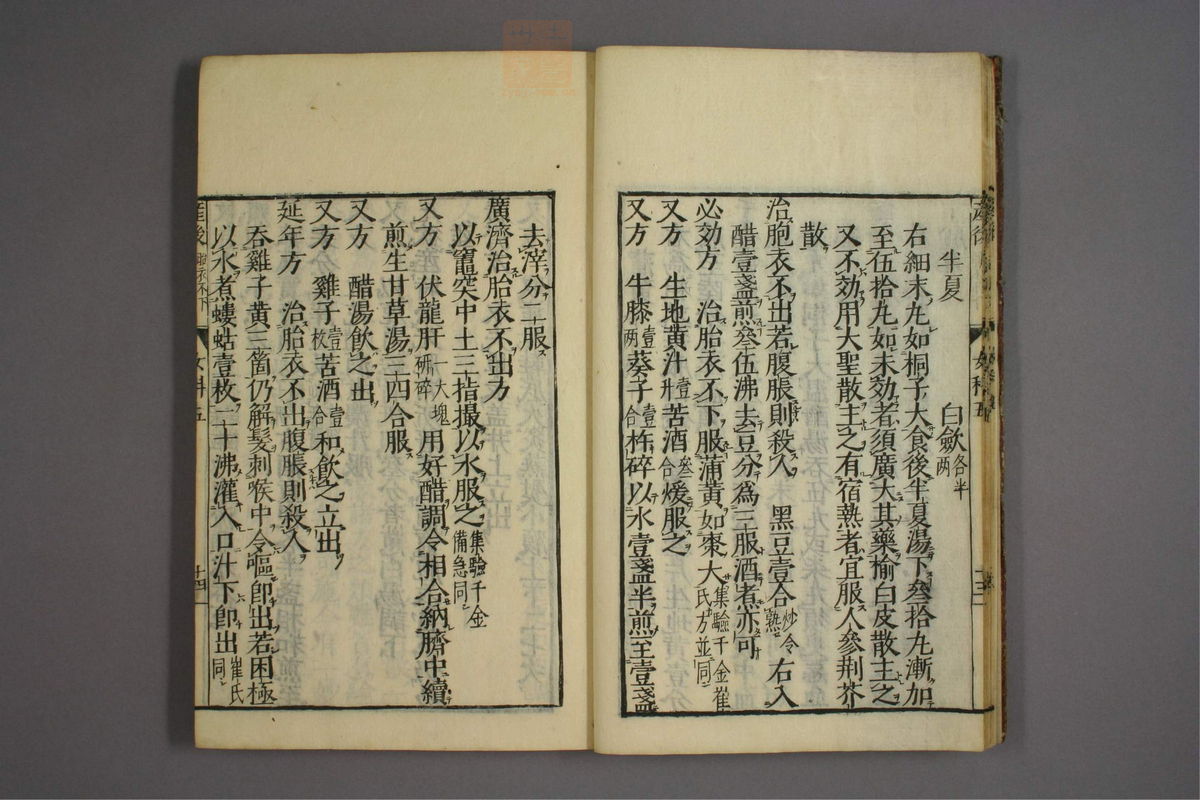 半夏 白歛各半两
右細末丸如桐子大食後半夏湯下叄拾丸漸加
至伍拾丸如未効者須廣大其藥榆白皮散主之
又不効用大聖散主之有宿熱者宜服人參荆芥
散
治胞衣不出若腹脹則殺人 黑豆壹合炒令熟右入
醋壹盞煎叄伍沸去豆分爲三服酒煮亦可
必効方 治胎衣不下服蒲黄如棗大集驗千金崔氏方並同
又方 生地黄汁壹升苦酒叄合煖服之
又方 牛膝壹两葵子壹合杵碎以水壹盞半煎至壹盞
去滓分二服
廣濟治胎衣不出方
以竈突中土三指撮以水服之集驗千金備急同
又方 伏龍肝一大塊研碎用好醋調令相合納臍中續
煎生甘草湯三四合服
又方 醋湯飲之出
又方 雞子壹枚苦酒壹合和飲之立出
延年方 治胎衣不出腹脹則殺人
吞雞子黄三箇仍解髮刺喉中令嘔即出若困極
以水煮螻蛄壹枚二十沸灌入口汁下即出崔氏同
産後 女科五 十四